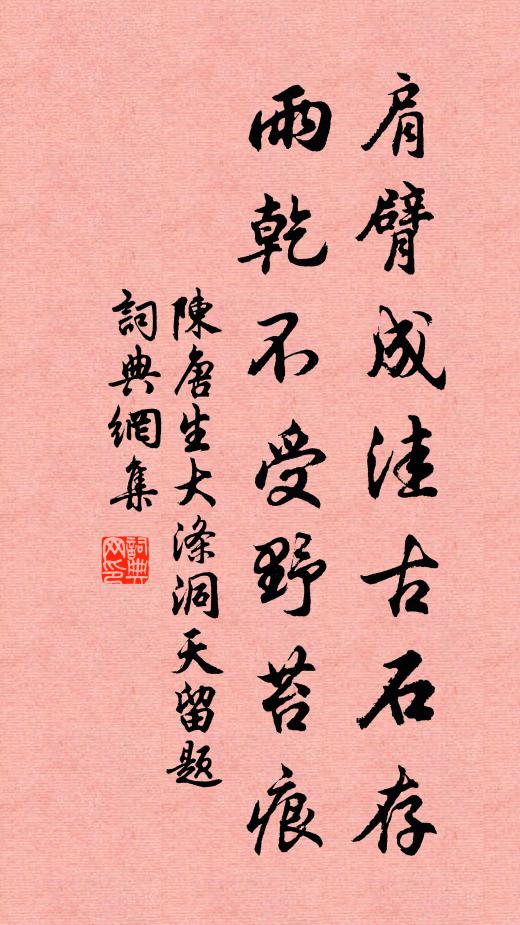 肩臂成洼古石存
雨乾不受野苔痕
陳唐生大滌洞天留題
詞典網集
詞典网印